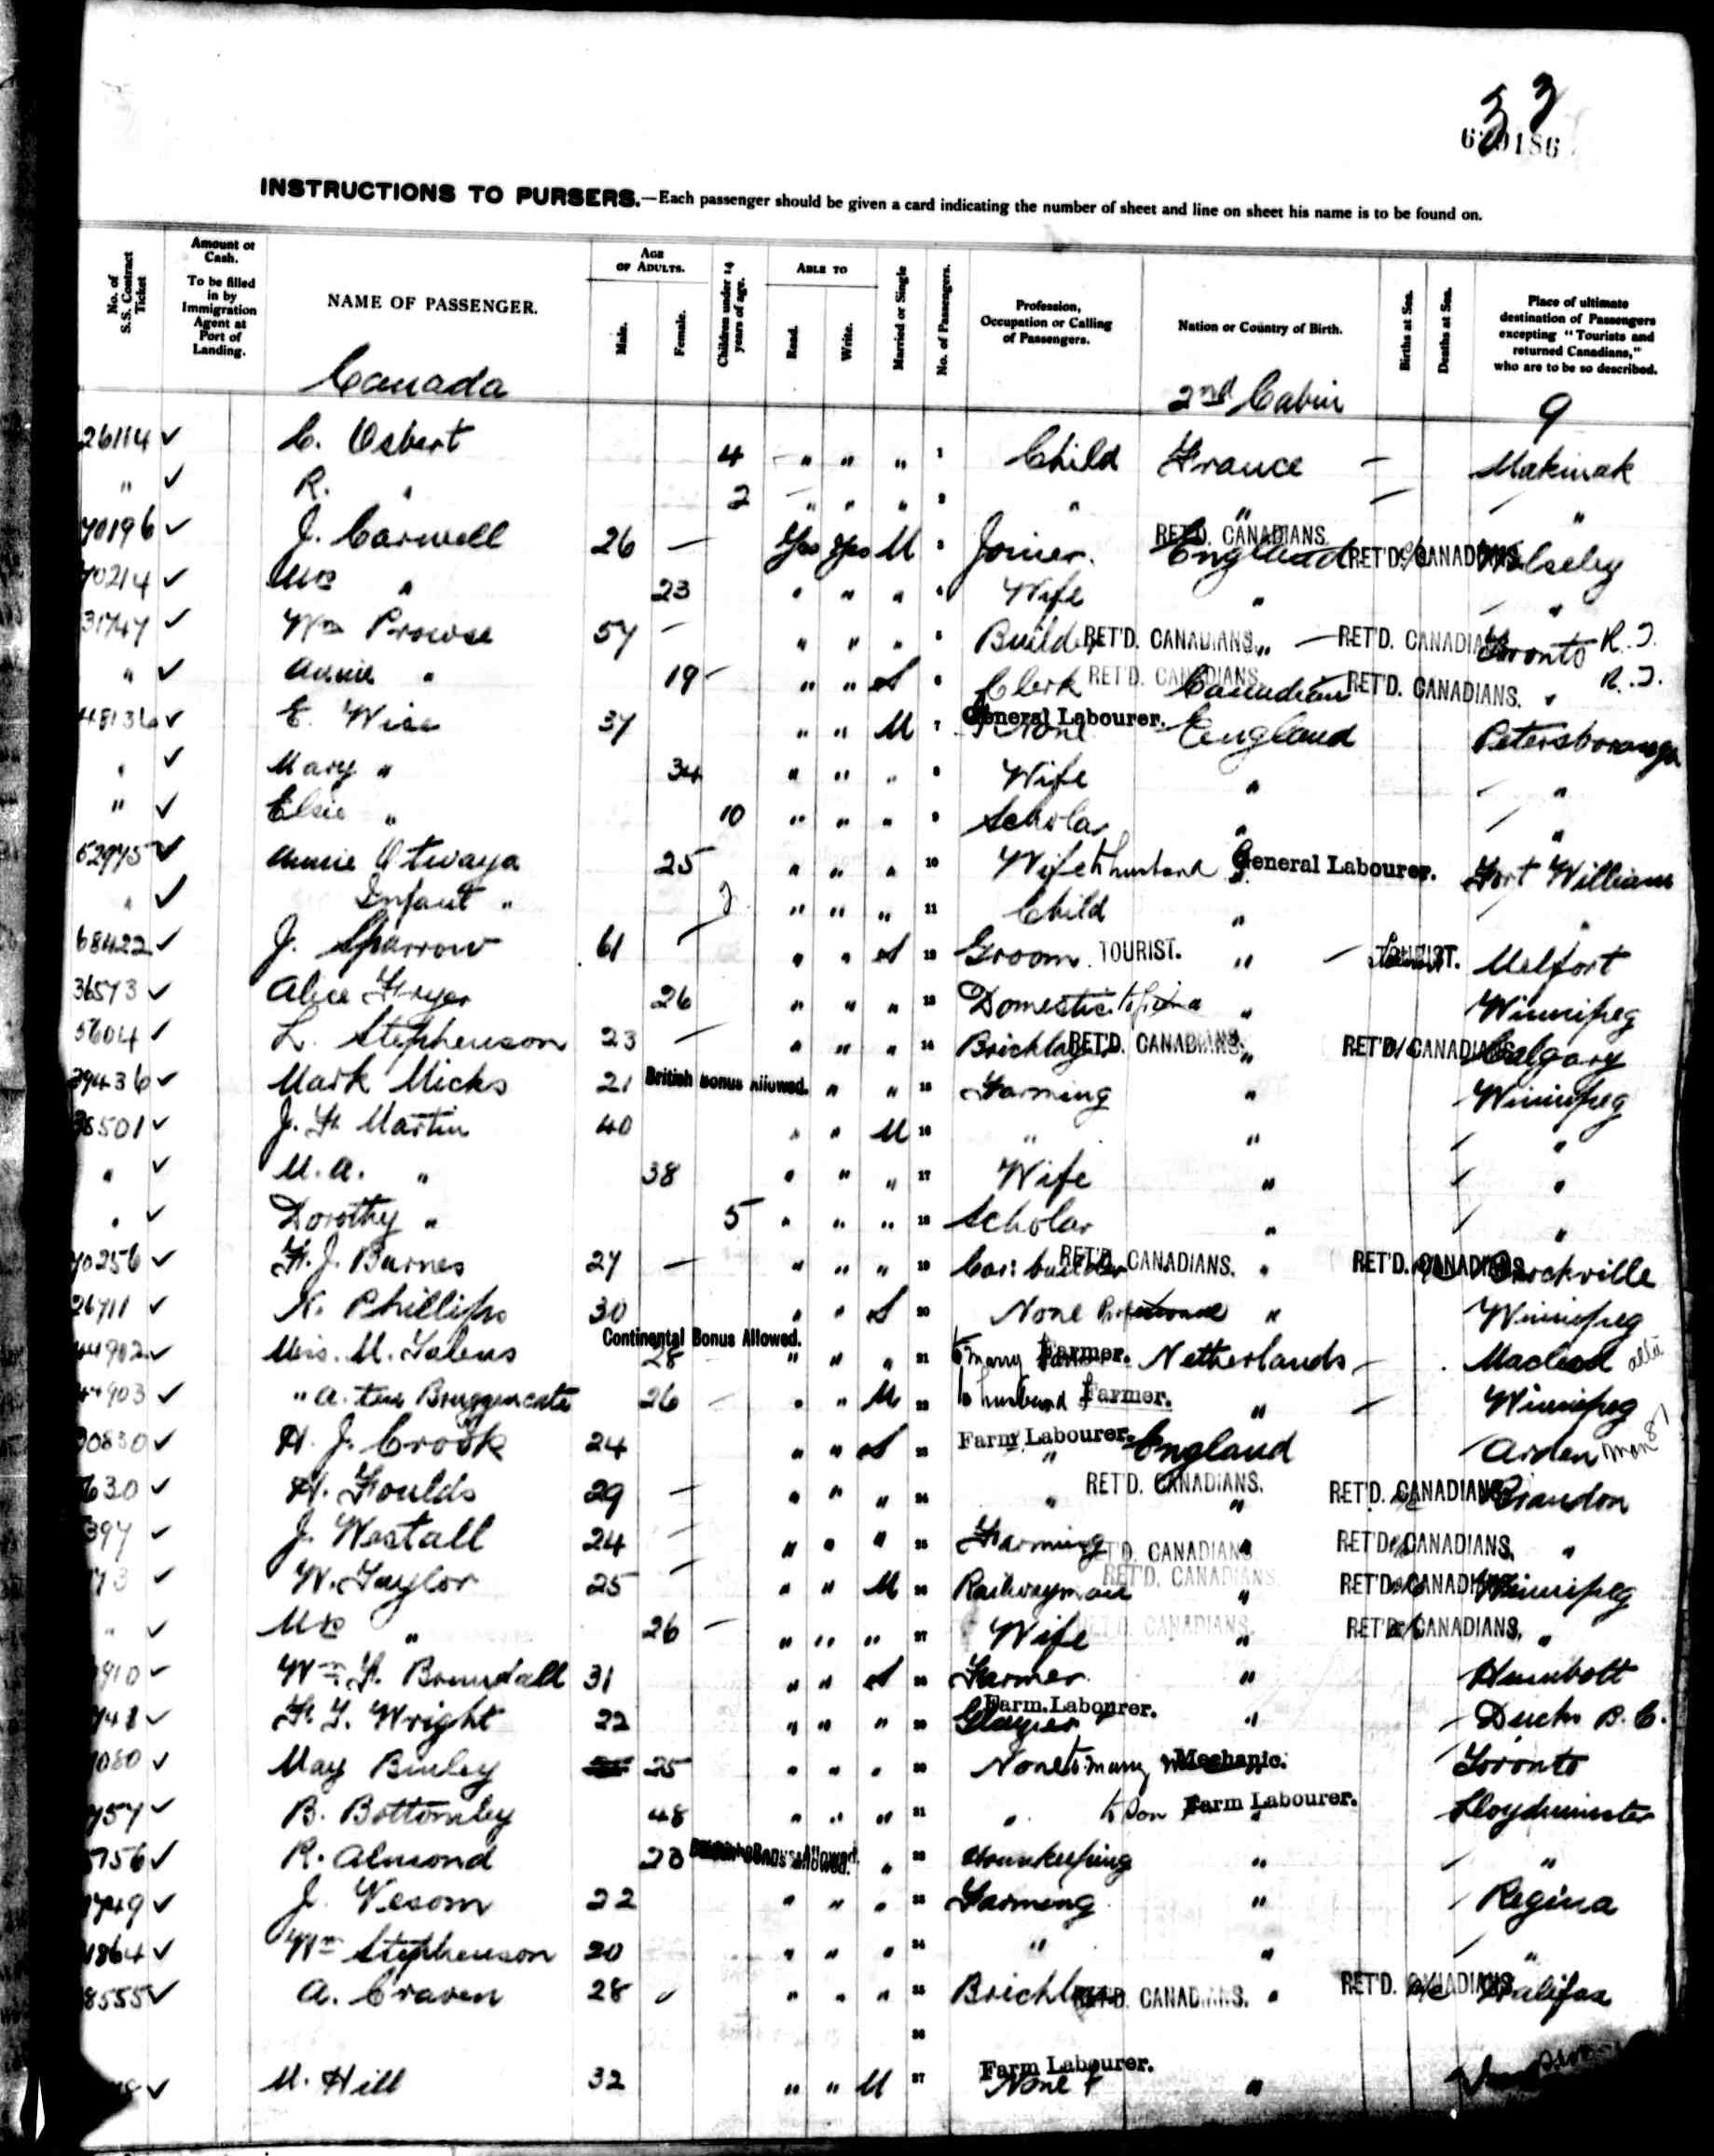 33
INSTRUCTIONS TO PURSERS.—Each passenger should be given a card indicating the number of sheet and line on sheet his name is to be found on.
No. of S.S. Contract Ticket
Amount of Cash. To be filled in by Immigration Agent at Port of Landing.
NAME OF PASSENGER.
AGE OF ADULTS. Male. Female.
Children under 14 years of age.
ABLE TO Read. Write.
Married or Single
No. of Passengers.
Profession, Occupation or Calling of Passengers.
Nation or Country of Birth.
Births at Sea.
Deaths at Sea.
Place of ultimate destination of Passengers excepting "Tourists and returned Canadians," who are to be so described.
Canada 2nd Cabin 9
26114 ✓ C. Osbert 4 " " " 1 Child France — Makinak
" ✓ R. " 2 — " " " 2 " " — "
70196 ✓ J. Carwell 26 — Yes Yes M 3 Joiner. RET'D. CANADIANS. England RET'D. CANADIANS. Wolseley
70214 ✓ Mrs " 23 " " " 4 Wife " "
31747 ✓ Wm Prowse 57 — " " " 5 Builder RET'D. CANADIANS. " — RET'D. CANADIANS. Toronto R.T.
" ✓ Annie " 19 — " " S 6 Clerk RET'D. CANADIANS. Canadian RET'D. CANADIANS. " R.T.
48136 ✓ E. Wise 37 " " M 7 General Labourer. None England Petersborough
" ✓ Mary " 34 " " " 8 Wife " "
" ✓ Elsie " 10 " " " 9 Scholar " "
52975 ✓ Annie Otwaya 25 " " " 10 Wife to husband General Labourer. Fort William
" ✓ Infant " " " " 11 Child " "
68422 ✓ J. Sparrow 61 — " " S 12 Groom. TOURIST. " — TOURIST. Melfort
36573 ✓ Alice Fryer 26 " " " 13 Domestic " Winnipeg
5604 ✓ L. Stephenson 23 — " " " 14 Bricklayer RET'D. CANADIANS. " RET'D. CANADIANS. Calgary
39436 ✓ Mark Micks 21 British Bonus Allowed. " " 15 Farming " Winnipeg
38501 ✓ J. H. Martin 40 " " M 16 " " "
" ✓ M. A. " 38 " " " 17 Wife " "
" ✓ Dorothy " 5 " " " 18 Scholar " "
70256 ✓ F. J. Barnes 27 — " " " 19 Car: builder RET'D. CANADIANS. " RET'D. CANADIANS. Brockville
26711 ✓ K. Phillips 30 " " S 20 None " Winnipeg
44902 ✓ Miss. M. Talens Continental Bonus Allowed. 28 — " " " 21 to marry Farmer. Netherlands — Macleod alta
44903 ✓ " A. ten Bruggencate 26 — " " M 22 to husband Farmer. " — Winnipeg
20830 ✓ H. J. Crook 24 " " S 23 Farm Labourer. " England Arden Man
630 ✓ H. Foulds 29 — " " " 24 " RET'D. CANADIANS. " RET'D. CANADIANS. Brandon
397 ✓ J. Westall 24 — " " " 25 Farming RET'D. CANADIANS " RET'D. CANADIANS. "
73 ✓ W. Taylor 25 — " " M 26 Railwayman RET'D. CANADIANS " RET'D. CANADIANS. Winnipeg
" ✓ Mrs " 26 — " " " 27 Wife RET'D. CANADIANS. " RET'D. CANADIANS. "
910 ✓ Wm. H. Brundall 31 " " S 28 Farmer " Humbolt
948 ✓ F. T. Wright 22 " " " 29 Farm Labourer. " Ducks B.C.
080 ✓ May Binley 25 " " " 30 None to marry Mechanic. Toronto
757 ✓ B. Bottomley 48 " " " 31 " to son Farm Labourer. " Lloydminster
5756 ✓ R. Almond 23 " 32 Housekeeping " "
7749 ✓ J. Vesom 22 " " " 33 Farming " Regina
1864 ✓ Wm Stephenson 20 " " " 34 " " "
8555 ✓ A. Craven 28 ✓ " " " 35 Bricklayer RET'D. CANADIANS. " RET'D. CANADIANS. Halifax
36
✓ M. Hill 32 " " M 37 Farm Labourer. None "